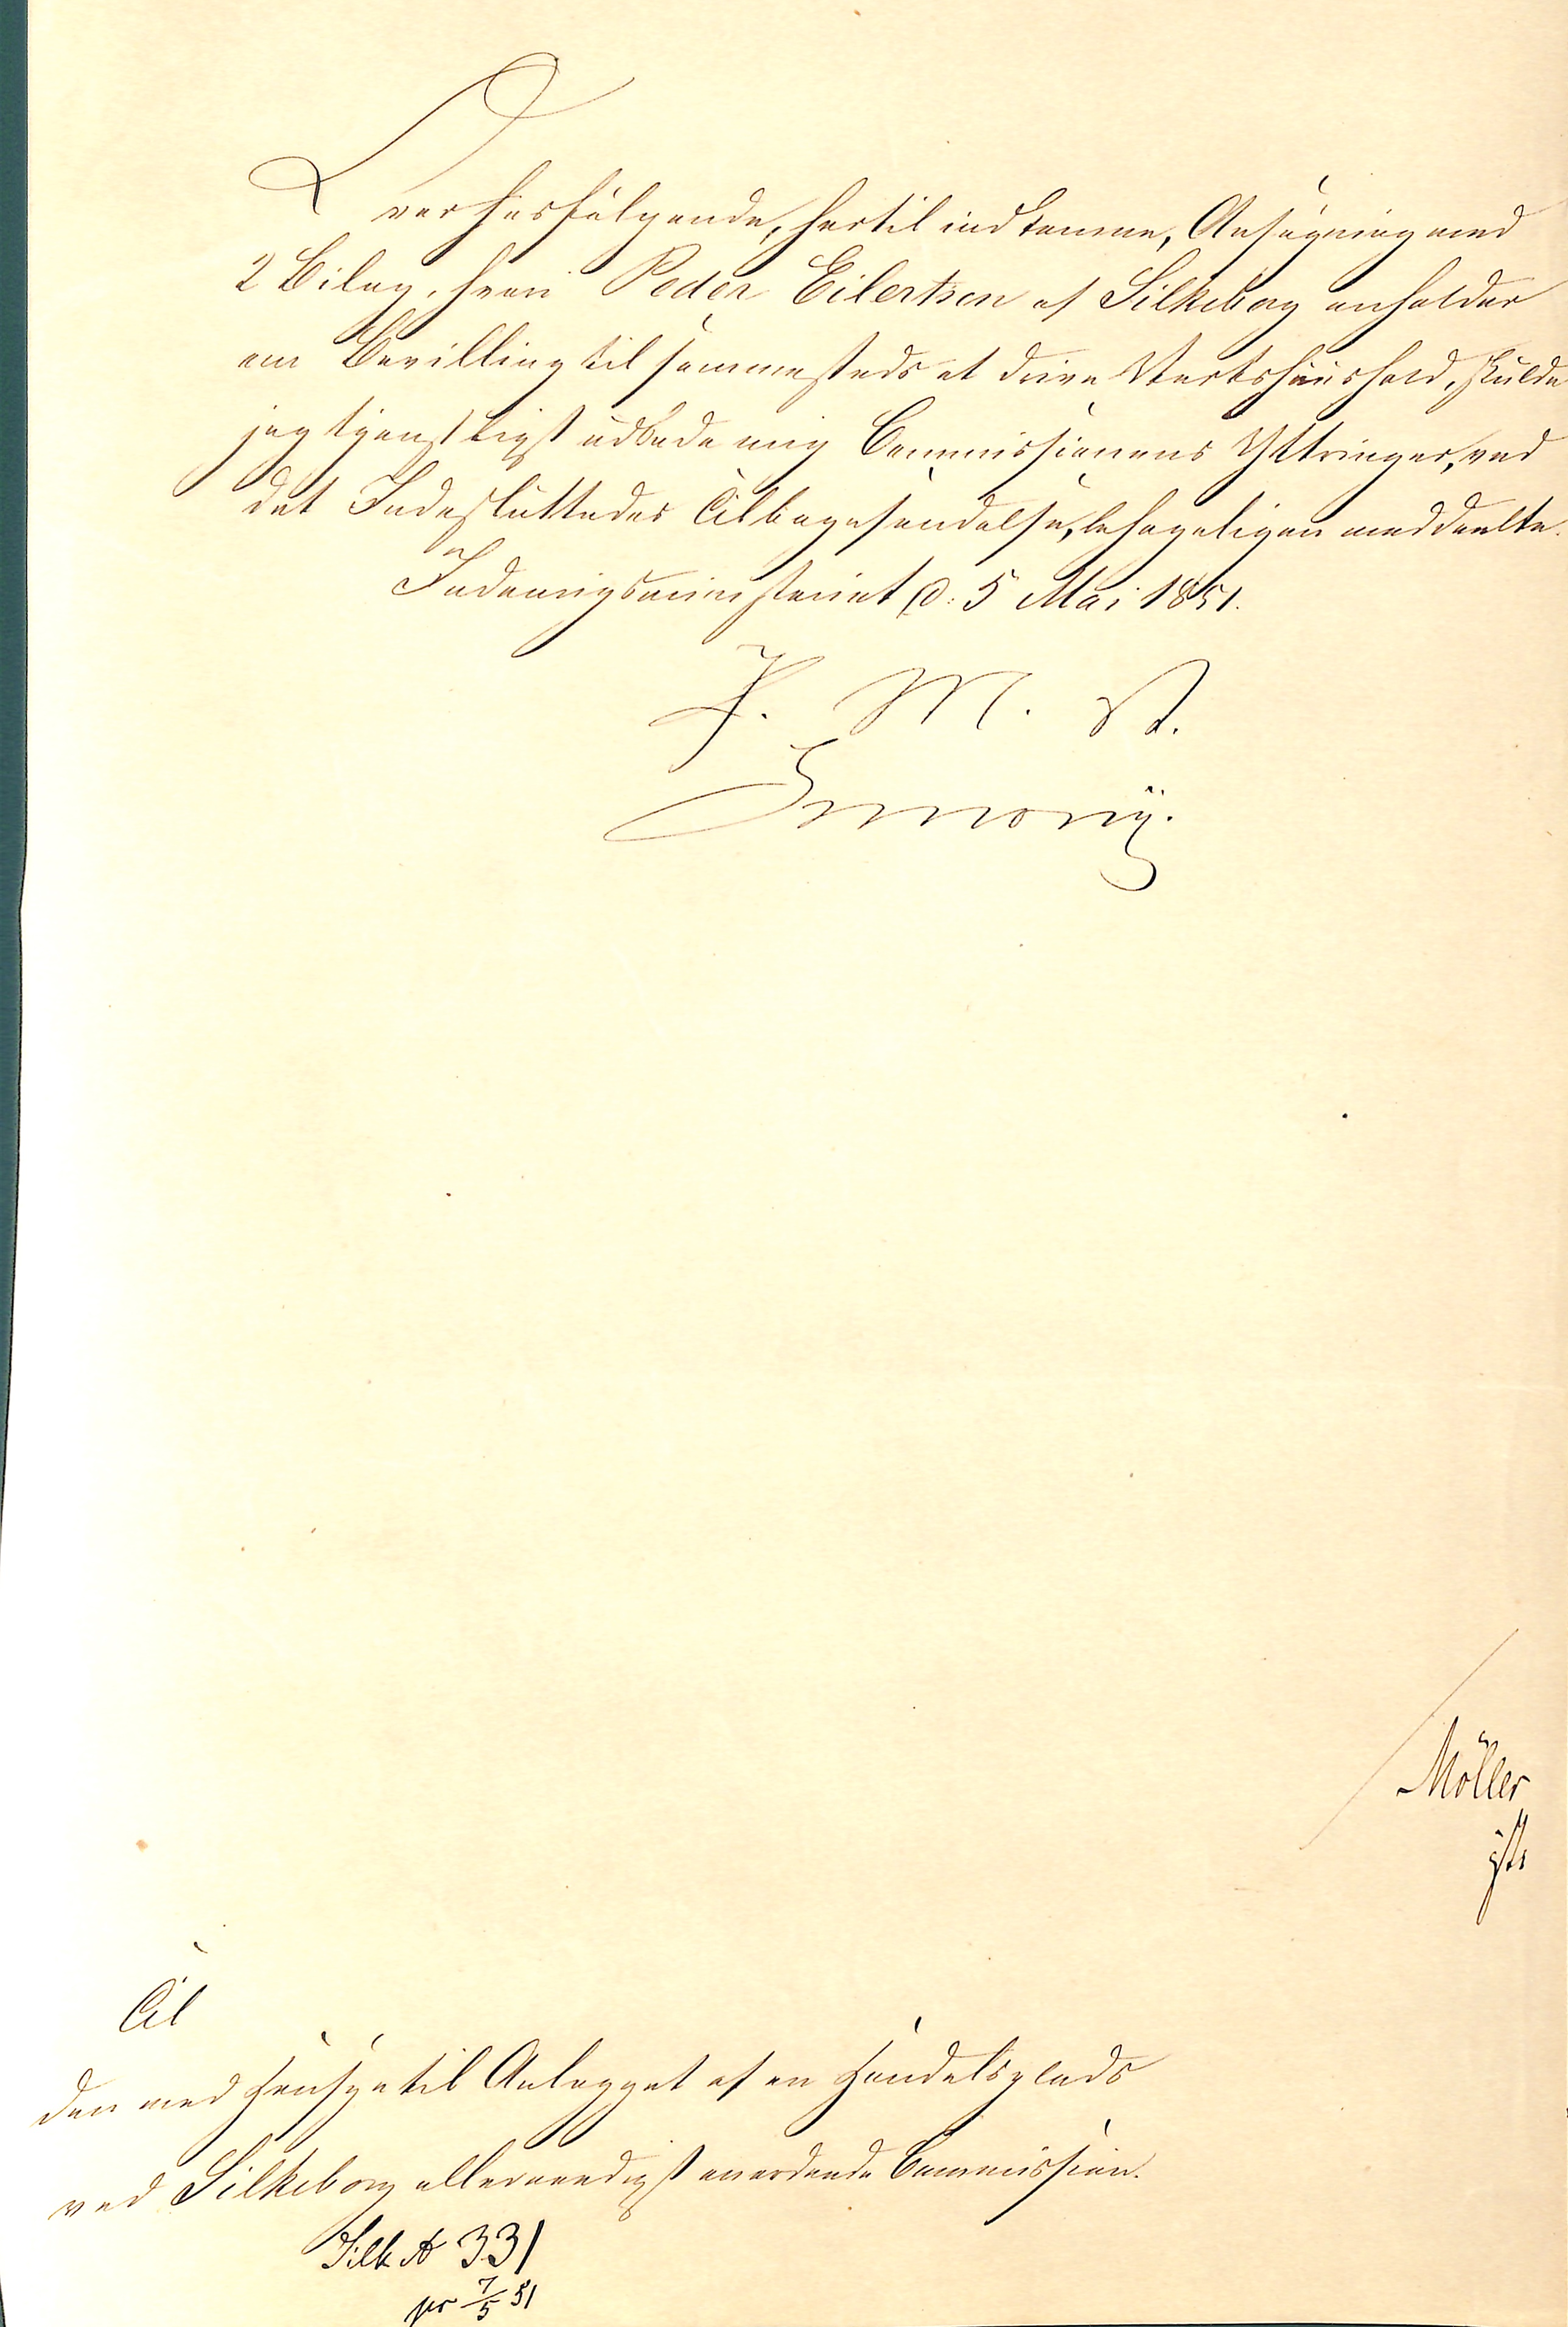 Over hosfølgende, hertil indkomne, Ansøgning med
2 Bilag, hvori Peder Eilertsen af Silkeborg anholder
om Bevilling til sammesteds at drive Værtshuushold, skulde
jeg tjenstligst udbede mig Commissionens Yttringer, ved
det Indesluttedes Tilbagesendelse, behageligen meddeelte.
Indenrigsministeriet d: 5 Mai 1851.
F. M. V.
Simony.
Möller
Til
den med Hensyn til Anlægget af en Handelsplads
ved Silkeborg allernaadigst anordnede Commission.
Silk A 331
pr 7/5 51